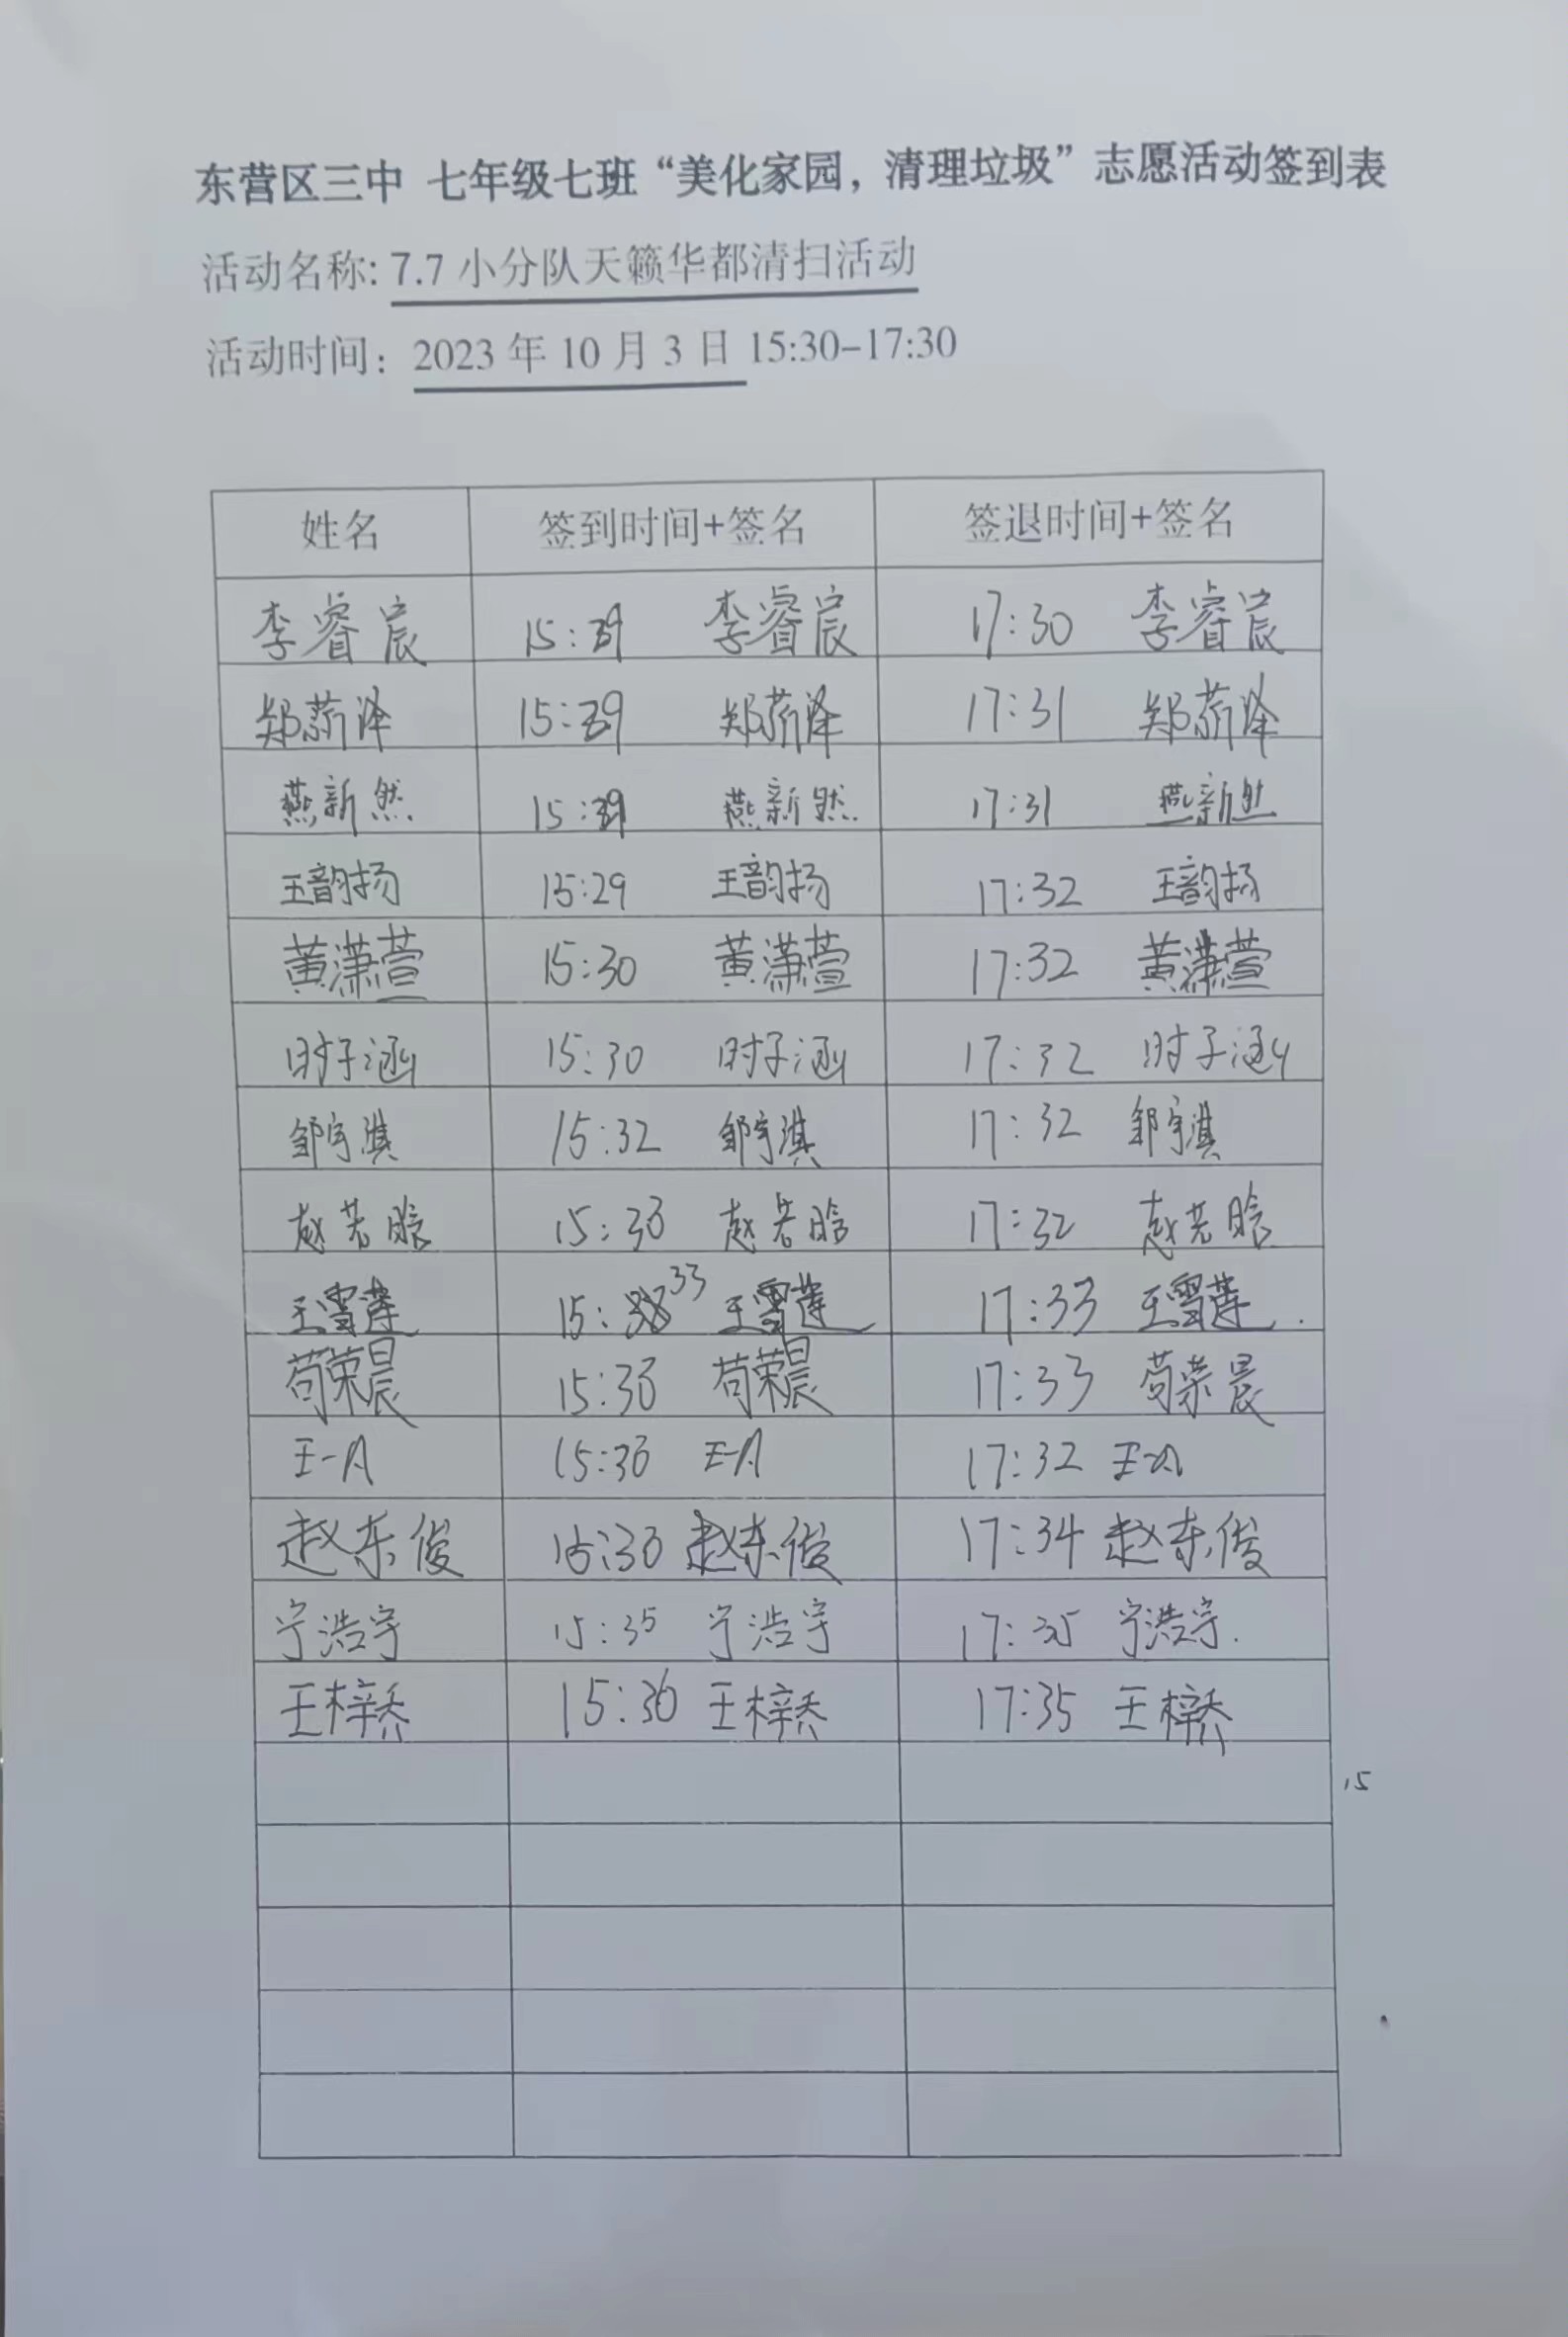 东营区三中 七年级七班“美化家园，清理垃圾”志愿活动签到表
活动名称: 7.7 小分队天籁华都清扫活动
活动时间： 2023 年 10 月 3 日 15:30-17:30
姓名 签到时间+签名 签退时间+签名
李睿宸 15: 李睿宸 17:30 李睿宸
郑 泽 15: 郑 泽 17:31 郑 泽
燕新然 15: 燕新然 17:31 燕新然
王韵扬 15:29 王韵扬 17:32 王韵扬
黄潇萱 15:30 黄潇萱 17:32 黄潇萱
时子涵 15:30 时子涵 17:32 时子涵
邹宇淇 15:32 邹宇淇 17:32 邹宇淇
赵若晗 15: 赵若晗 17:32 赵若晗
王雪莲 15: 33 王雪莲 17:33 王雪莲
苟荣晨 15: 苟荣晨 17:33 苟荣晨
王一 15: 王一 17:32 王一
赵东俊 赵东俊 17:34 赵东俊
宁浩宇 15:35 宁浩宇 17:35 宁浩宇
王梓乔 15:36 王梓乔 17:35 王梓乔
15